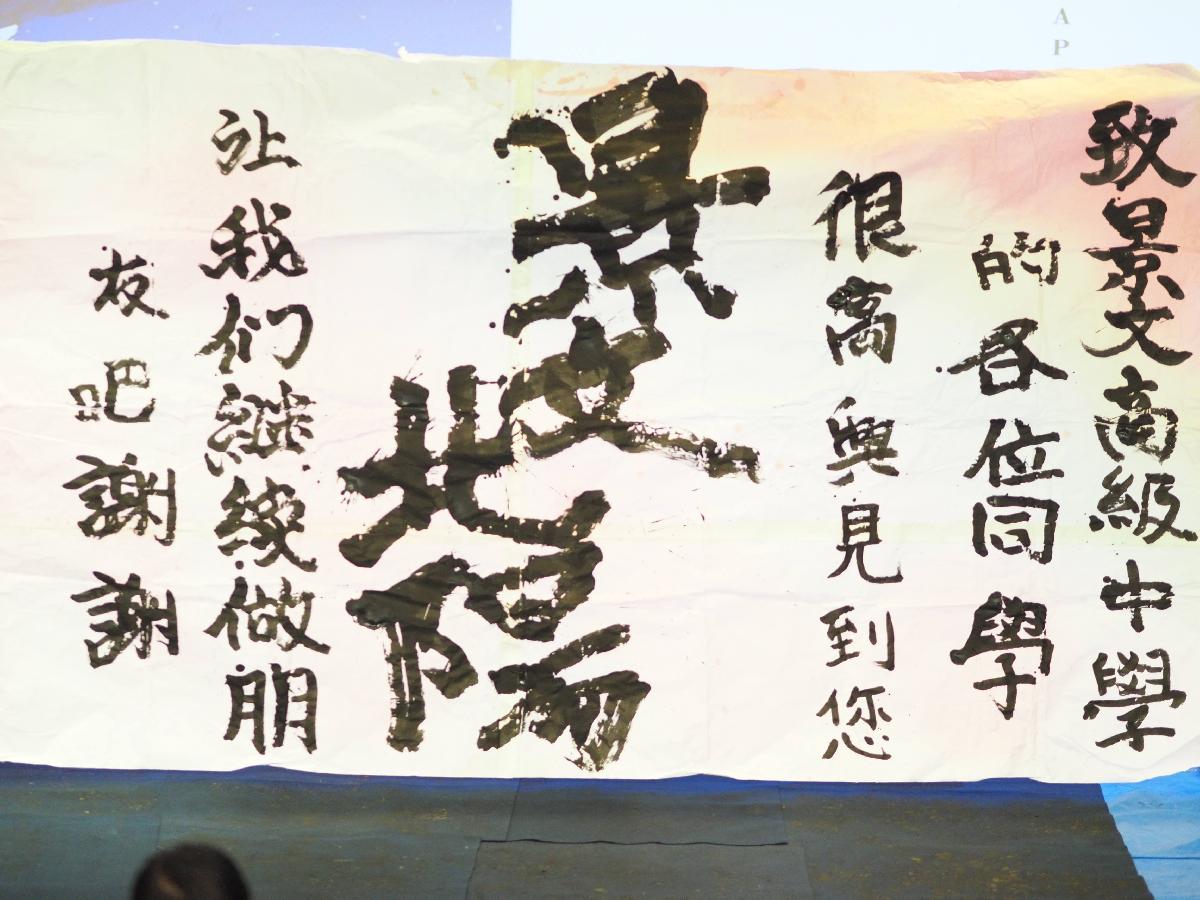 A
P
致景文高級中學
的各位同學
很高興見到您
景文
北陽
让我们继续做朋
友吧謝謝